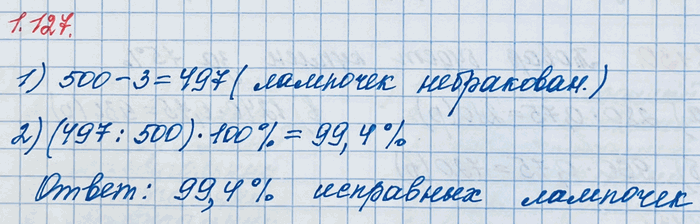 1.127.
1) 500 - 3 = 497 ( лампочек небракован.)
2) (497 : 500) · 100% = 99,4%
Ответ: 99,4% исправных лампочек